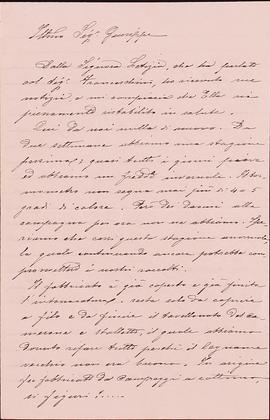 Ill.mo Sig.r Giuseppe
Dalla Signora Letizia, che ha parlato
col Sig.r Franceschini, ho ricevuto sue
notizie, e mi compiaccio che Ella sia
pienamente ristabilito in salute.
Qui da noi nulla di nuovo. Da
due settimane abbiamo una stagione
pessima; quasi tutti i giorni piove
ed abbiamo un freddo invernale. Il ter-
mometro non segna mai più di 4 o 5
gradi di calore. Però dei danni alla
campagna per ora non ne abbiamo. Spe-
riamo che cessi questa stagione anormale,
la quale continuando ancora potrebbe com-
promettere i nostri raccolti.
Il fabbricato è già coperto e già finita
l'intonacatura. resta solo da coprire
a filo e da finire il tavellonato del ca-
merone e stalletto, il quale abbiamo
dovuto rifare tutto perchè il legname
vecchio non era buono. In origine
fu fabbricato da Campeggi a cottimo,
si figuri!.....